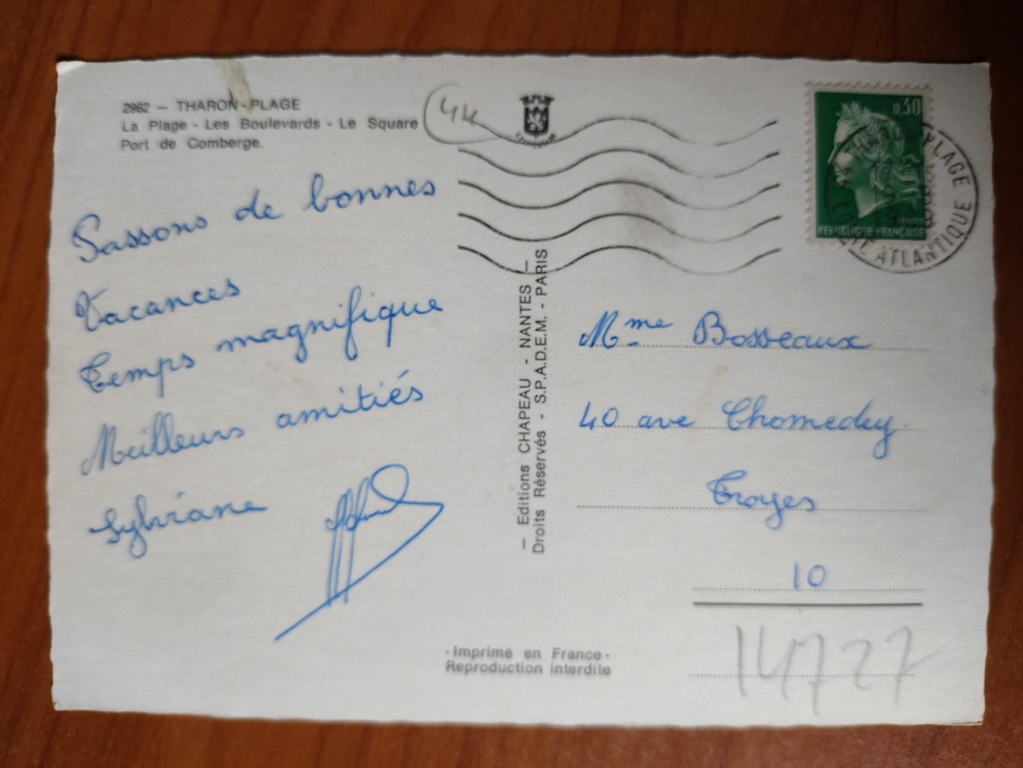 2962 - THARON-PLAGE
La Plage - Les Boulevards - Le Square
Port de Comberge.
44
Passons de bonnes
Vacances
Temps magnifique
Meilleurs amitiés
Sylviane
— Editions CHAPEAU - NANTES —
Droits Réservés - S.P.A.D.E.M. - PARIS
0,30
REPUBLIQUE FRANÇAISE
PLAGE
ATLANTIQUE
Mme Bosseaux
40 ave Chomedey
Troyes
10
14727
- Imprimé en France -
Reproduction interdite